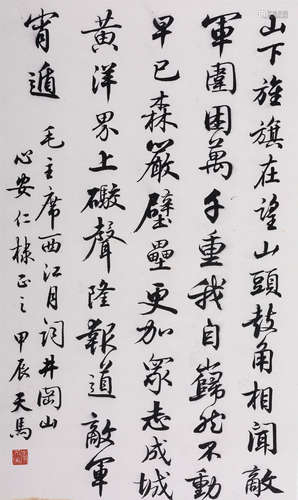 山下旌旗在望山頭鼓角相聞敵
軍圍困萬千重我自巋然不動
早已森嚴壁壘更加眾志成城
黃洋界上礮聲隆報道敵軍
宵遁
毛主席西江月詞井岡山
心安仁棣正之甲辰天馬